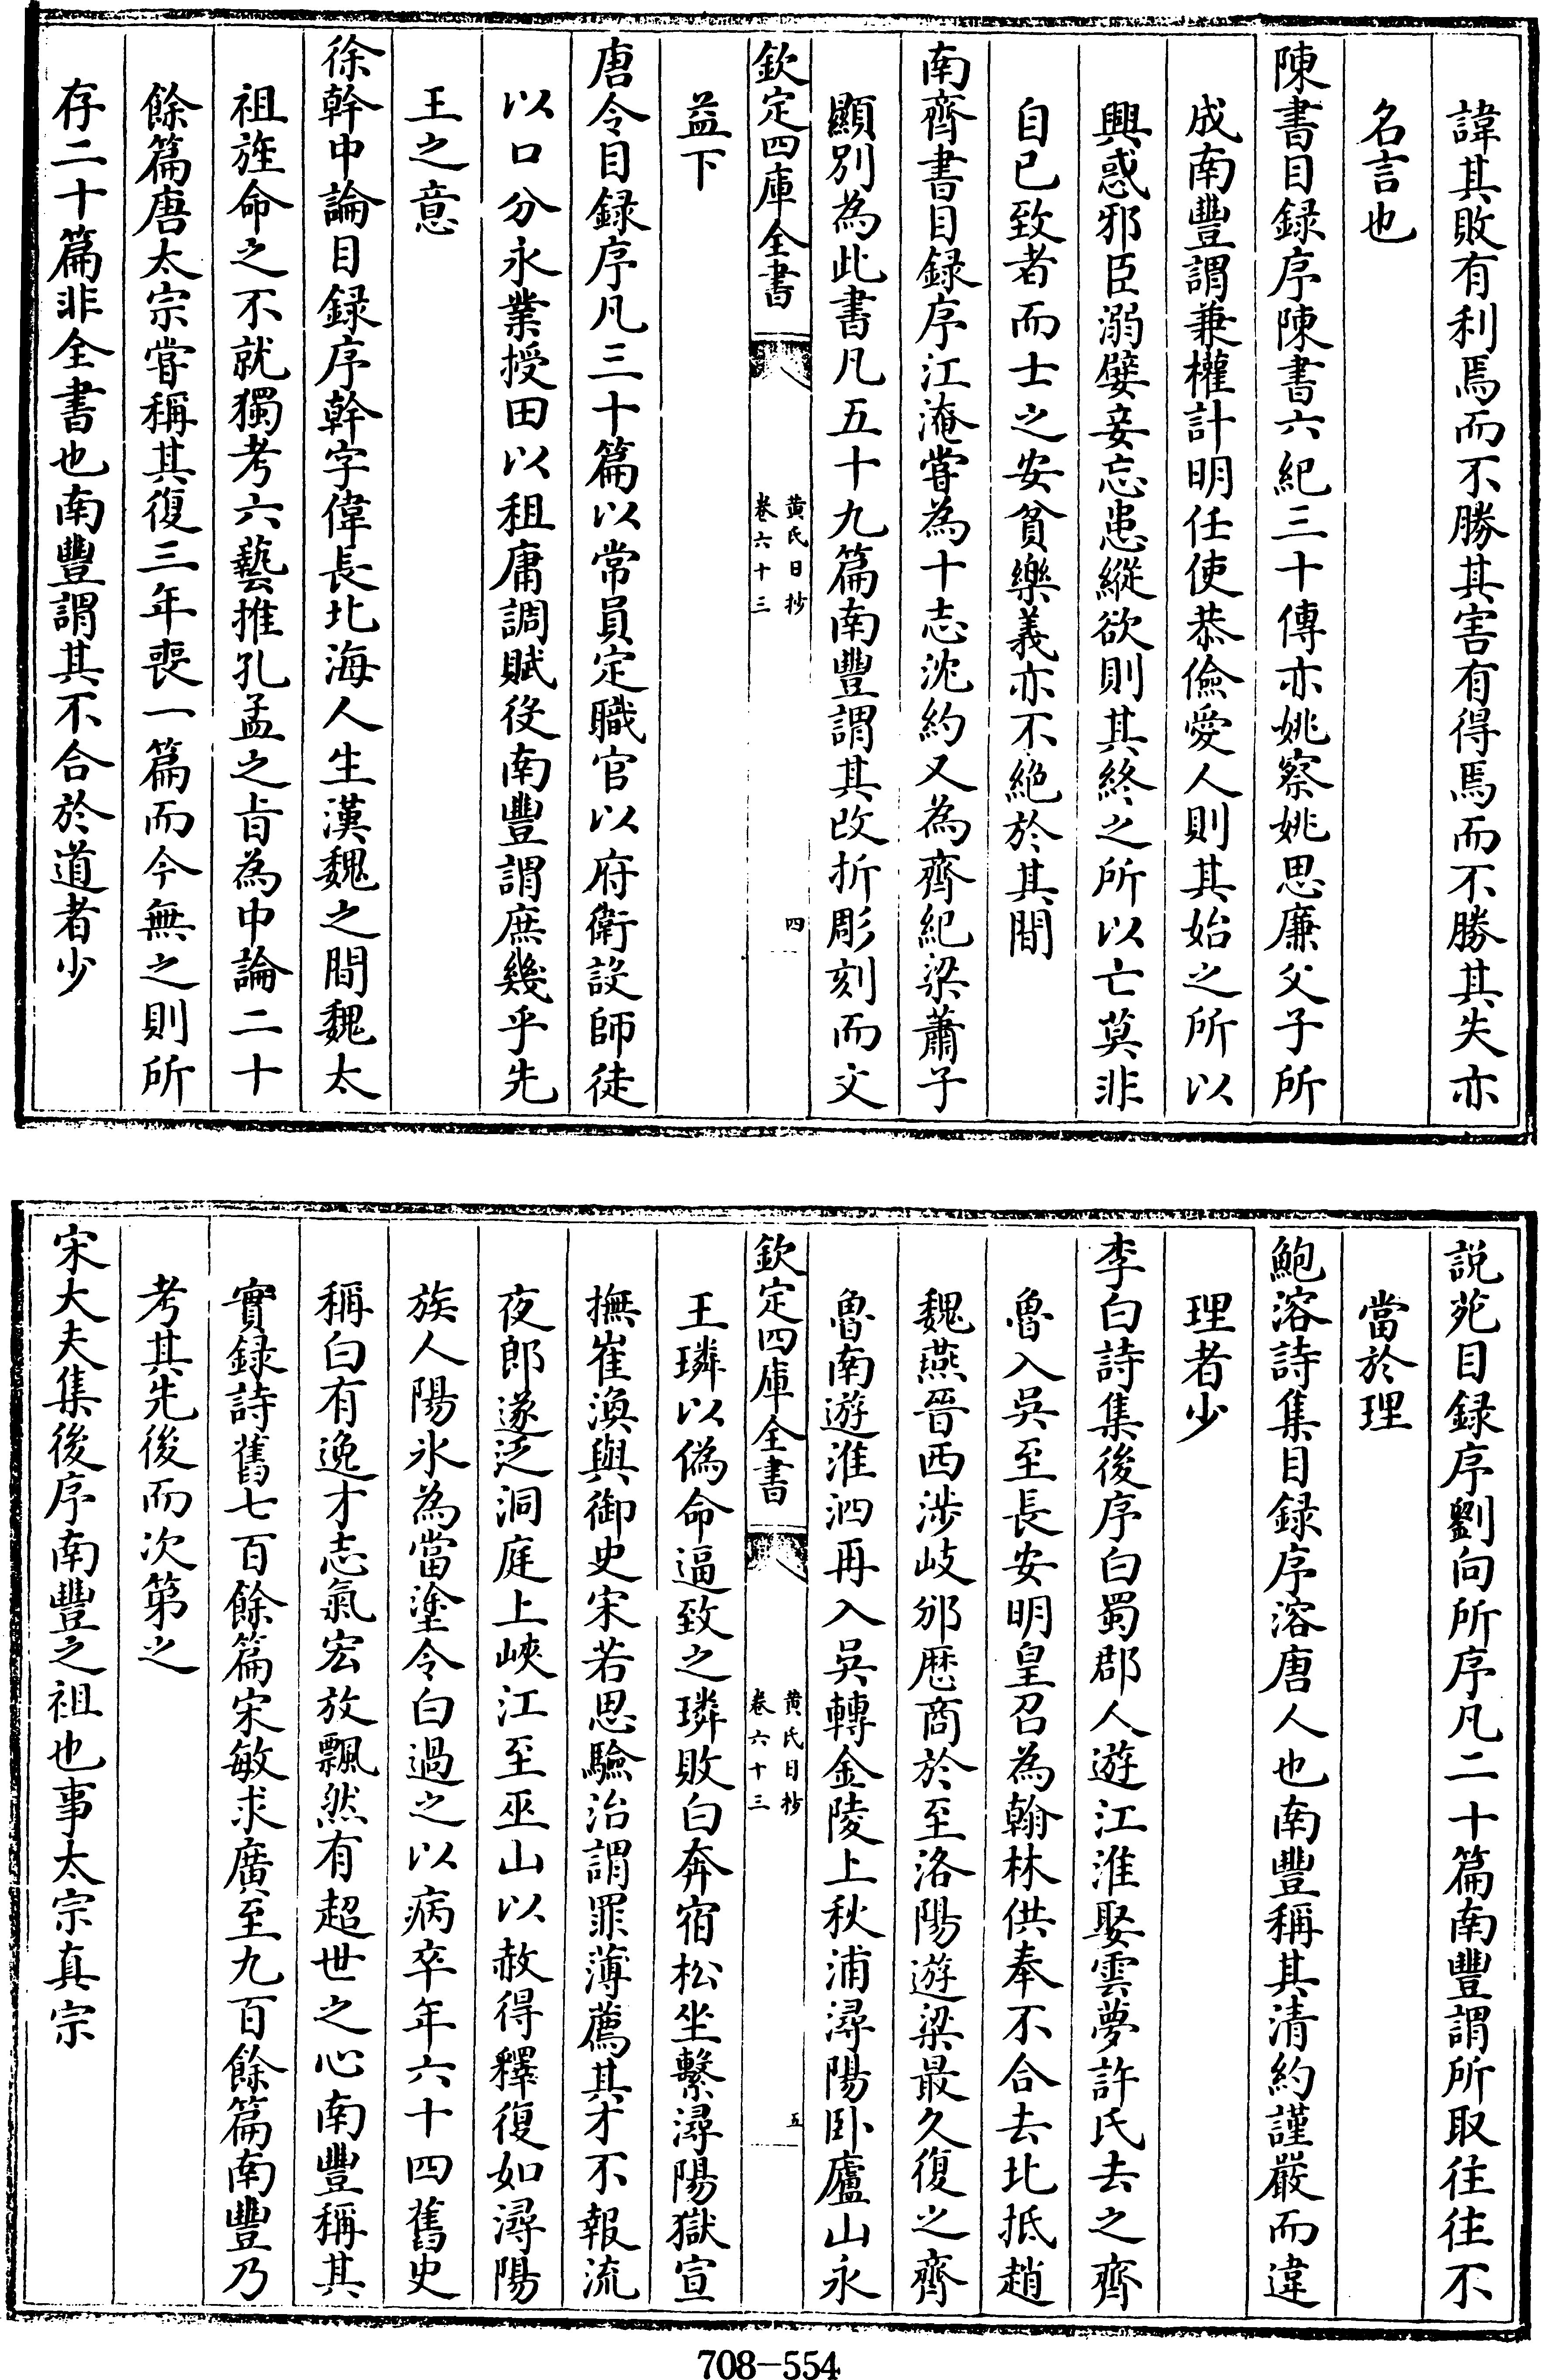 諱其敗有利焉而不勝其害有得焉而不勝其失亦
名言也
陳書目録序陳書六紀三十傳亦姚察姚思廉父子所
成南豐謂兼權計明任使恭儉愛人則其始之所以
興惑邪臣溺嬖妾忘患縱欲則其終之所以亡莫非
自已致者而士之安貧樂義亦不絶於其間
南齊書目録序江淹甞為十志沈約又為齊紀梁蕭子
顯别為此書凡五十九篇南豐謂其改折彫刻而文
欽定四庫全書
黄氏日抄
卷六十三
四
益下
唐令目録序凡三十篇以常員定職官以府衛設師徒
以口分永業授田以租庸調賦役南豐謂庶幾乎先
王之意
徐幹中論目録序幹字偉長北海人生漢魏之間魏太
祖旌命之不就獨考六藝推孔孟之㫖為中論二十
餘篇唐太宗甞稱其復三年喪一篇而今無之則所
存二十篇非全書也南豐謂其不合於道者少
説苑目録序劉向所序凡二十篇南豐謂所取往往不
當於理
鮑溶詩集目録序溶唐人也南豐稱其清約謹嚴而違
理者少
李白詩集後序白蜀郡人遊江淮娶雲夢許氏去之齊
魯入吳至長安明皇召為翰林供奉不合去北抵趙
魏燕晉西涉岐邠厯商於至洛陽遊梁最久復之齊
魯南遊淮泗再入吳轉金陵上秋浦潯陽卧廬山永
欽定四庫全書
黄氏日抄
卷六十三
五
王璘以偽命逼致之璘敗白奔宿松坐繫潯陽獄宣
撫崔渙與御史宋若思驗治謂罪薄薦其才不報流
夜郎遂泛洞庭上峽江至巫山以赦得釋復如潯陽
族人陽氷為當塗令白過之以病卒年六十四舊史
稱白有逸才志氣宏放飄然有超世之心南豐稱其
實録詩舊七百餘篇宋敏求廣至九百餘篇南豐乃
考其先後而次第之
宋大夫集後序南豐之祖也事太宗真宗
708-554